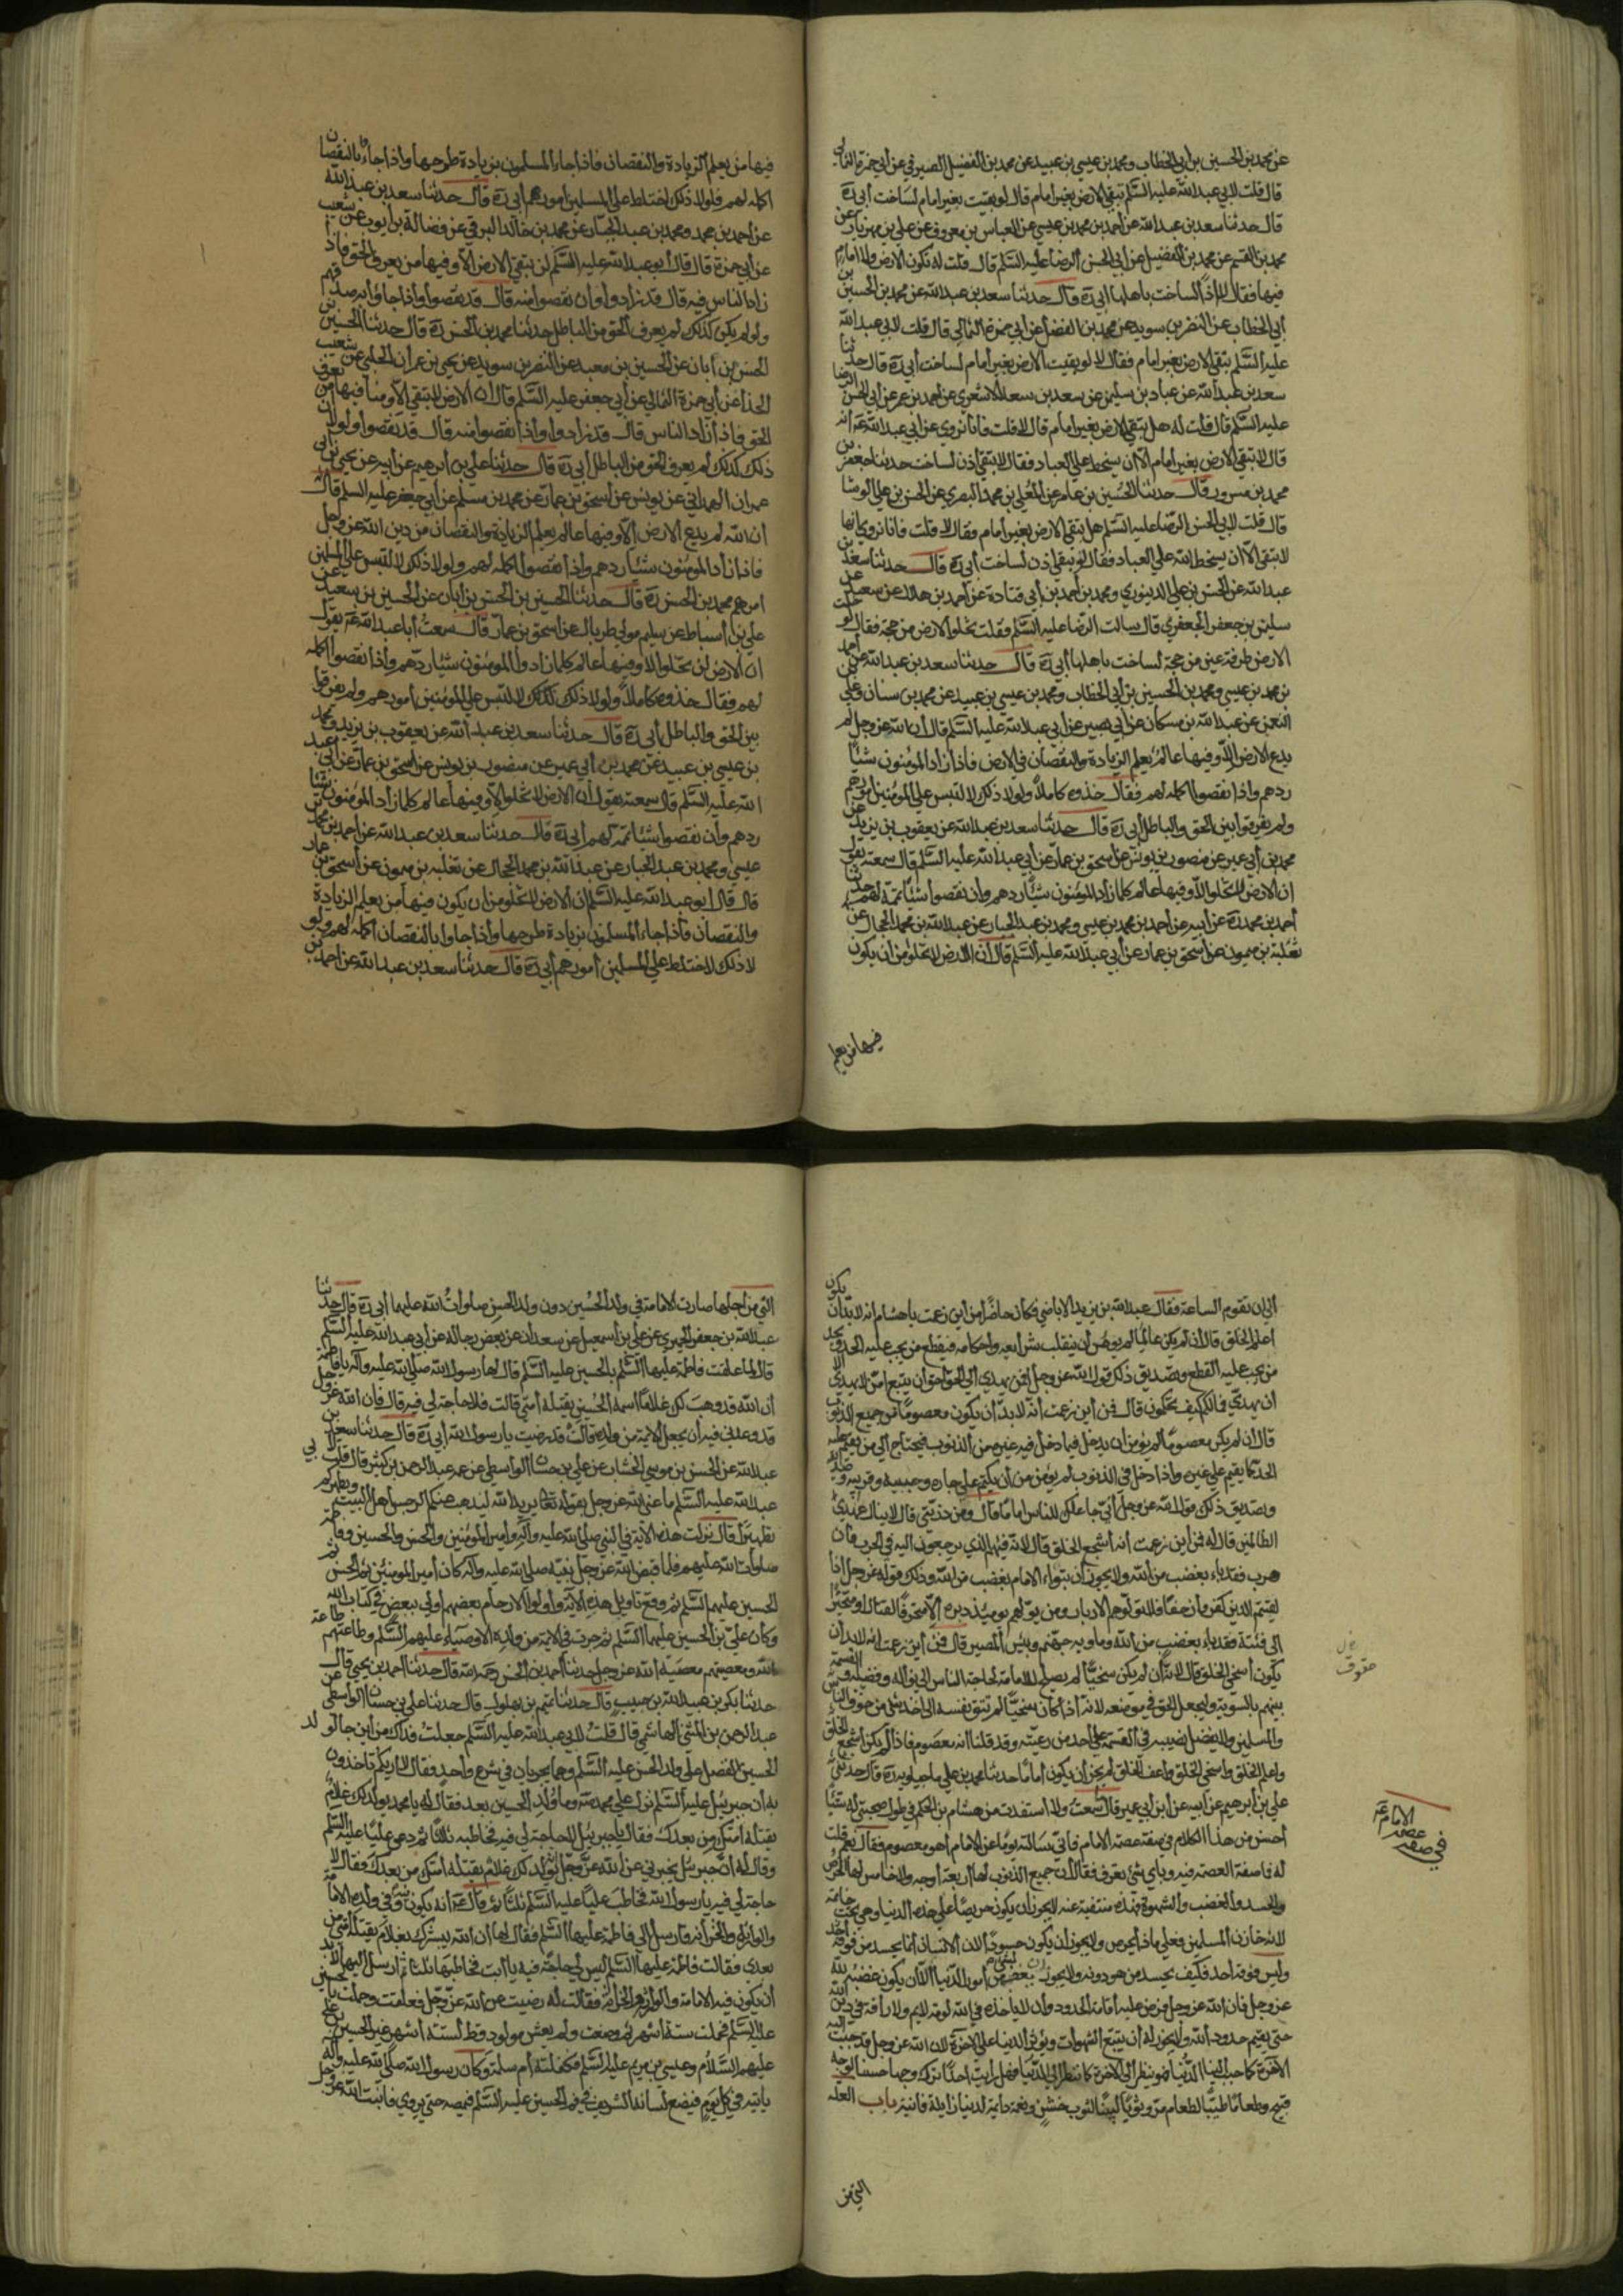 عن محمد بن الحسين بن أبي الخطاب ومحمد بن عيسى بن عبيد عن محمد بن الفضيل الصيرفي عن أبي حمزة الثمالي
قال قلت لابي عبد الله عليه السلم تبقى الارض بغير امام قال لو بقيت بغير امام لساخت أبي ره
قال حدثنا سعد بن عبد الله عن احمد بن محمد بن عيسى عن العباس بن معروف عن علي بن مهزيار عن
محمد بن القسم عن محمد بن الفضيل عن أبي الحسن الرضا عليه السلم قال قلت له تكون الارض ولا امام
فيها فقال لا اذا لساخت باهلها أبي ره قال حدثنا سعد بن عبد الله عن محمد بن الحسين بن
أبي الخطاب عن النضر بن سويد عن محمد بن الفضل عن أبي حمزة الثمالي قال قلت لابي عبد الله
عليه السلم يبقى الارض بغير امام فقال لا لو بقيت الارض بغير امام لساخت أبي ره قال حدثنا
سعد بن عبد الله عن عباد بن سليمن عن سعد بن سعد الاشعري عن احمد بن عمر عن أبي الحسن الرضا
عليه السلم قال قلت له هل يبقى الارض بغير امام قال لا قلت فانا نروي عن ابي عبد الله ع انه
قال لا تبقى الارض بغير امام الا ان يسخط علي العباد فقال لا تبقى اذن لساخت حدثنا جعفر بن
محمد بن مسرور قال حدثنا الحسين بن عامر عن المعلى بن محمد البصري عن الحسن بن علي الوشا
قال قلت لابي الحسن الرضا عليه السلم هل يبقى الارض بغير امام فقال لا قلت فانا نروي انها
لا تبقى الا ان يسخط الله علي العباد فقال لا تبقى اذن لساخت أبي ره قال حدثنا سعد بن
عبد الله عن الحسن بن علي الدينوري ومحمد بن أحمد بن أبي قتادة عن أحمد بن هلال عن سعيد عن
سليمن بن جعفر الجعفري قال سالت الرضا عليه السلم فقلت تخلوا الارض من حجه فقال لو خلت
الارض طرفة عين من حجة لساخت باهلها أبي ره قال حدثنا سعد بن عبد الله عن أحمد
بن محمد بن عيسى ومحمد بن الحسين بن أبي الخطاب ومحمد بن عيسى بن عبيد عن محمد بن سنان وعلي بن
النعمن عن عبد الله بن مسكان عن أبي بصير عن أبي عبد الله عليه السلم قال ان الله عز وجل لم
يدع الارض الا وفيها عالم يعلم الزيادة والنقصان في الارض فاذا زاد المؤمنون شيئا
ردهم واذا نقصوا اكمله لهم فقال خذوه كاملا ولو لا ذلك لالتبس علي المؤمنين أمورهم
ولم يفرقوا بين الحق والباطل أبي ره قال حدثنا سعد بن عبد الله عن يعقوب بن يزيد عن
محمد بن أبي عمير عن منصور بن يونس عن اسحق بن عمار عن أبي عبد الله عليه السلم قال سمعته يقول
ان الارض لا تخلوا الا وفيها عالم كلما زاد المؤمنون شيئا ردهم وان نقصوا شيئا تممه لهم حدثنا
أحمد بن محمد ره عن أبيه عن احمد بن محمد بن عيسى ومحمد بن عبد الجبار عن عبد الله بن محمد الحجال عن
ثعلبة بن ميمون عن اسحق بن عمار عن أبي عبد الله عليه السلم قال ان الارض لا تخلوا من أن يكون
فيها من يعلم
فيها من يعلم الزيادة والنقصان فاذا جاء المسلمون بزيادة طرحها واذا جاءوا بالنقصان
اكمله لهم فلولا ذلك اختلط على المسلمين أمورهم أبي ره قال حدثنا سعد بن عبد الله
عن احمد بن محمد ومحمد بن عبد الجبار عن محمد بن خالد البرقي عن فضالة بن أيوب عن شعيب
عن أبي حمزة قال قال أبو عبد الله عليه السلم لن يبقى الارض الا وفيها من يعرف الحق فاذا
زاد الناس فيه قال قد زادوا وان نقصوا منه قال قد نقصوا واذا جاؤا به صدقهم
ولو لم يكن كذلك لم يعرف الحق من الباطل حدثنا محمد بن الحسن ره قال حدثنا الحسين بن
الحسن بن أبان عن الحسين بن سعيد عن النضر بن سويد عن يحيى بن عمران الحلبي عن شعيب
الحذا عن أبي حمزة الثمالي عن أبي جعفر عليه السلم قال ان الارض لا تبقى الا ومنا فيها من يعرف
الحق فاذا زاد الناس قال قد زادوا واذا نقصوا منه قال قد نقصوا ولولا ان
ذلك كذلك لم يعرف الحق من الباطل أبي ره قال حدثنا علي بن ابرهيم عن ابيه عن يحيى بن أبي
عمران الهمداني عن يونس عن اسحق بن عمار عن محمد بن مسلم عن أبي جعفر عليه السلم قال
ان الله لم يدع الارض الا وفيها عالم يعلم الزيادة والنقصان من دين الله عز وجل
فاذا زاد المؤمنون شيئا ردهم واذا نقصوا اكمله لهم ولولا ذلك لالتبس علي المسلمين
امرهم محمد بن الحسن ره قال حدثنا الحسين بن الحسن بن أبان عن الحسين بن سعيد عن
علي بن أسباط عن سليم مولى طربال عن اسحق بن عمار قال سمعت أبا عبد الله ع يقول
ان الارض لن تخلوا الا وفيها عالم كلما زاد المؤمنون شيئا ردهم واذا نقصوا اكمله
لهم فقال خذوه كاملا ولولا ذلك لالتبس علي المؤمنين أمورهم ولم يفرقوا
بين الحق والباطل أبي ره قال حدثنا سعد بن عبد الله عن يعقوب بن يزيد ومحمد
بن عيسى بن عبيد عن محمد بن أبي عمير عن منصور بن يونس عن اسحق بن عمار عن أبي عبد
الله عليه السلم قال سمعته يقول ان الارض لا تخلوا الا وفيها عالم كلما زاد المؤمنون شيئا
ردهم وان نقصوا شيئا تممه لهم أبي ره قال حدثنا سعد بن عبد الله عن احمد بن محمد بن
عيسى ومحمد بن عبد الجبار عن عبد الله بن محمد الحجال عن ثعلبه بن ميمون عن اسحق بن عمار
قال قال أبو عبد الله عليه السلم ان الارض لا تخلو من ان يكون فيها من يعلم الزيادة
والنقصان فاذا جاء المسلمون بزيادة طرحها واذا جاوا بالنقصان اكمله لهم ولو
لا ذلك لاختلط علي المسلمين أمورهم أبي ره قال حدثنا سعد بن عبد الله عن احمد بن
الى ان تقوم الساعة فقال عبد الله بن يزيد الاباضي فكان حاضرا من أين زعمت يا هشام انه لا بد ان يكون
اعلم الخلق قال ان لم يكن عالما لم يؤمن أن ينقلب شرائعه واحكامه فيقطع من يجب عليه الحد ويحد
من يجب عليه القطع وتصديق ذلك قول الله عز وجل افمن يهدي الى الحق احق أن يتبع امن لا يهدي الا
ان يهدي فما لكم كيف تحكمون قال فمن أين زعمت أنه لا بد أن يكون معصوما من جميع الذنوب
قال ان لم يكن معصوما لم يؤمن ان يدخل فيما دخل فيه غيره من الذنوب فيحتاج الى من يقيم عليه
الحد كما يقيم على غيره واذا دخل في الذنوب لم يؤمن من أن يكتم علي جاره وحبيبه وقريبه وصديقه
وتصديق ذلك قول الله عز وجل أني جاعلك للناس اماما قال ومن ذريتي قال لا ينال عهدي
الظالمين قال له فمن أين زعمت أنه أشجع الخلق قال لانه قيمهم الذي يرجعون اليه في الحرب فان
هرب فقد باء بغضب من الله ولا يجوز أن يبواء الامام بغضب من الله وذلك قوله عز وجل اذا
لقيتم الذين كفروا زحفا فلا تولوهم الادبار ومن يولهم يومئذ دبره الا متحرفا لقتال او متحيزا
الى فئة فقد باء بغضب من الله وماويه جهنم وبئس المصير قال فمن أين زعمت انه لا بد أن
يكون أسخى الخلق قال لانه ان لم يكن سخيا لم يصلح للامامة لحاجة الناس الى نواله وفضله والقسمة
بينهم بالسوية وليجعل الحق في موضعه لانه اذا كان سخيا لم تتق نفسه الى اخذ شئ من حقوق الناس
والمسلمين ولا يفضل نصيبه في القسمة علي أحد من رعيته وقد قلنا انه معصوم فاذا لم يكن أشجع الخلق
واعلم الخلق واسخى الخلق واعف الخلق لم يجز أن يكون أماما حدثنا محمد بن علي ماجيلويه ره قال حدثني
علي بن أبرهيم عن أبيه عن أبن أبي عمير قال ما سمعت ولا استفدت من هشام بن الحكم في طول صحبتي له شيئا
أحسن من هذا الكلام في صفة عصمة الامام فاني سالته يوما عن الامام أهو معصوم فقال نعم قلت
له فما صفة العصمة فيه وباي شئ يعرف فقال أن جميع الذنوب لها أربعة أوجه ولا خامس لها الحرص
والحسد والغضب والشهوة فهذه منتفية عنه لا يجوز أن يكون حريصا على هذه الدنيا وهي تحت خاتمه
لانه خازن المسلمين فعلي ماذا يحرص ولا يجوز أن يكون حسودا لان الانسان انما يحسد من فوقه
وليس فوقه أحد فكيف يحسد من هو دونه ولا يجوز ان يغضب لشئ من أمور الدنيا الا أن يكون غضبه لله
عز وجل فان الله عز وجل فرض عليه أقامة الحدود وان لا ياخذه في الله لومة لايم ولا رأفة في دين الله
حتى يقيم حدود الله ولا يجوز له أن يتبع الشهوات ويؤثر الدنيا علي الاخرة لان الله عز وجل قد حبب اليه
الاخرة كما حبب الينا الدنيا فهو ينظر الى الاخرة كما ننظر الى الدنيا فهل رايت احدا ترك وجها حسنا لوجه
قبيح وطعاما طيبا لطعام مر وثوبا لينا لثوب خشن ونعمة دايمة لدنيا زايلة فانية باب العلة
التي من
الامام ع
عصمة
في صفة
حقوق
التي من أجلها صارت الامامة في ولد الحسين دون ولد الحسن صلوات الله عليهما أبي ره قال حدثنا
عبد الله بن جعفر الحميري عن علي بن أسمعيل عن سعدان عن بعض رجاله عن أبي عبد الله عليه السلم
قال لما علقت فاطمة عليها السلم بالحسين عليه السلم قال لها رسول الله صلى الله عليه وآله يا فاطمة
أن الله قد وهب لك غلاما اسمه الحسين يقتله أمتي قالت فلا حاجة لي فيه قال فان الله عز وجل
قد وعدني فيه أن يجعل الائمة من ولده قالت قد رضيت يا رسول الله أبي ره قال حدثنا سعد بن
عبد الله عن الحسن بن موسى الخشاب عن علي بن حسان الواسطي عن عمه عبد الرحمن بن كثير قال قلت لابي
عبد الله عليه السلم ما عنى الله عز وجل بقوله انما يريد الله ليذهب عنكم الرجس أهل البيت ويطهركم
تطهيرا قال نزلت هذه الآية في النبي صلى الله عليه وآله وامير المؤمنين والحسن والحسين وفاطمة
صلوات الله عليهم فلما قبض الله عز وجل نبيه صلى الله عليه واله كان أمير المؤمنين ثم الحسن ثم
الحسين عليهم السلم ثم وقع تاويل هذه الآية وأولوا الارحام بعضهم أولى ببعض في كتاب الله
وكان علي بن الحسين عليهما السلم ثم جرت في الائمة من ولده الاوصياء عليهم السلم وطاعتهم طاعة
الله ومعصيتهم معصية الله عز وجل حدثنا أحمد بن الحسن رحمه الله قال حدثنا احمد بن يحيى قال
حدثنا بكر بن عبد الله بن حبيب قال حدثنا تميم بن بهلول قال حدثنا علي بن حسان الواسطي عن
عبد الرحمن بن المثنى الهاشمي قال قلت لابي عبد الله عليه السلم جعلت فداك من أين جا لولد
الحسين الفضل على ولد الحسن عليه السلم وهما يجريان في شرع واحد فقال لا اريكم تاخذون
به ان جبرئيل عليه السلم نزل علي محمد ص وما ولد الحسين بعد فقال له يا محمد يولد لك غلام
يقتله أمتك من بعدك فقال يا جبرئيل لا حاجة لي فيه فخاطبه ثلاثا ثم دعى عليا عليه السلم
وقال له ان جبرئيل يخبرني عن الله عز وجل أنه يولد لك غلام يقتله أمتك من بعدك فقال لا
حاجة لي فيه يا رسول الله فخاطب عليا عليه السلم ثلثا ثم قال ع أنه يكون فيه وفي ولده الامامة
والوراثة والخزانه فارسل الى فاطمة عليها السلم فقال لها أن الله يبشرك بغلام يقتله أمتي من
بعدي فقالت فاطمة عليها السلم ليس لي حاجة فيه يا ابت فخاطبها ثلثا ثم ارسل اليها لابد
أن يكون فيه الامامة والوراثة والخزانة فقالت له رضيت عن الله عز وجل فعلقت وحملت بالحسين
عليه السلم فحملت ستة أشهر ثم وضعت ولم يعش مولود قط لستة أشهر غير الحسين بن علي
عليهم السلام وعيسى بن مريم عليه السلم فكفلته أم سلمة وكان رسول الله صلى الله عليه وآله
ياتيه في كل يوم فيضع لسانه الشريف في فم الحسين عليه السلم فيمصه حتى يروى فانبت الله عز وجل